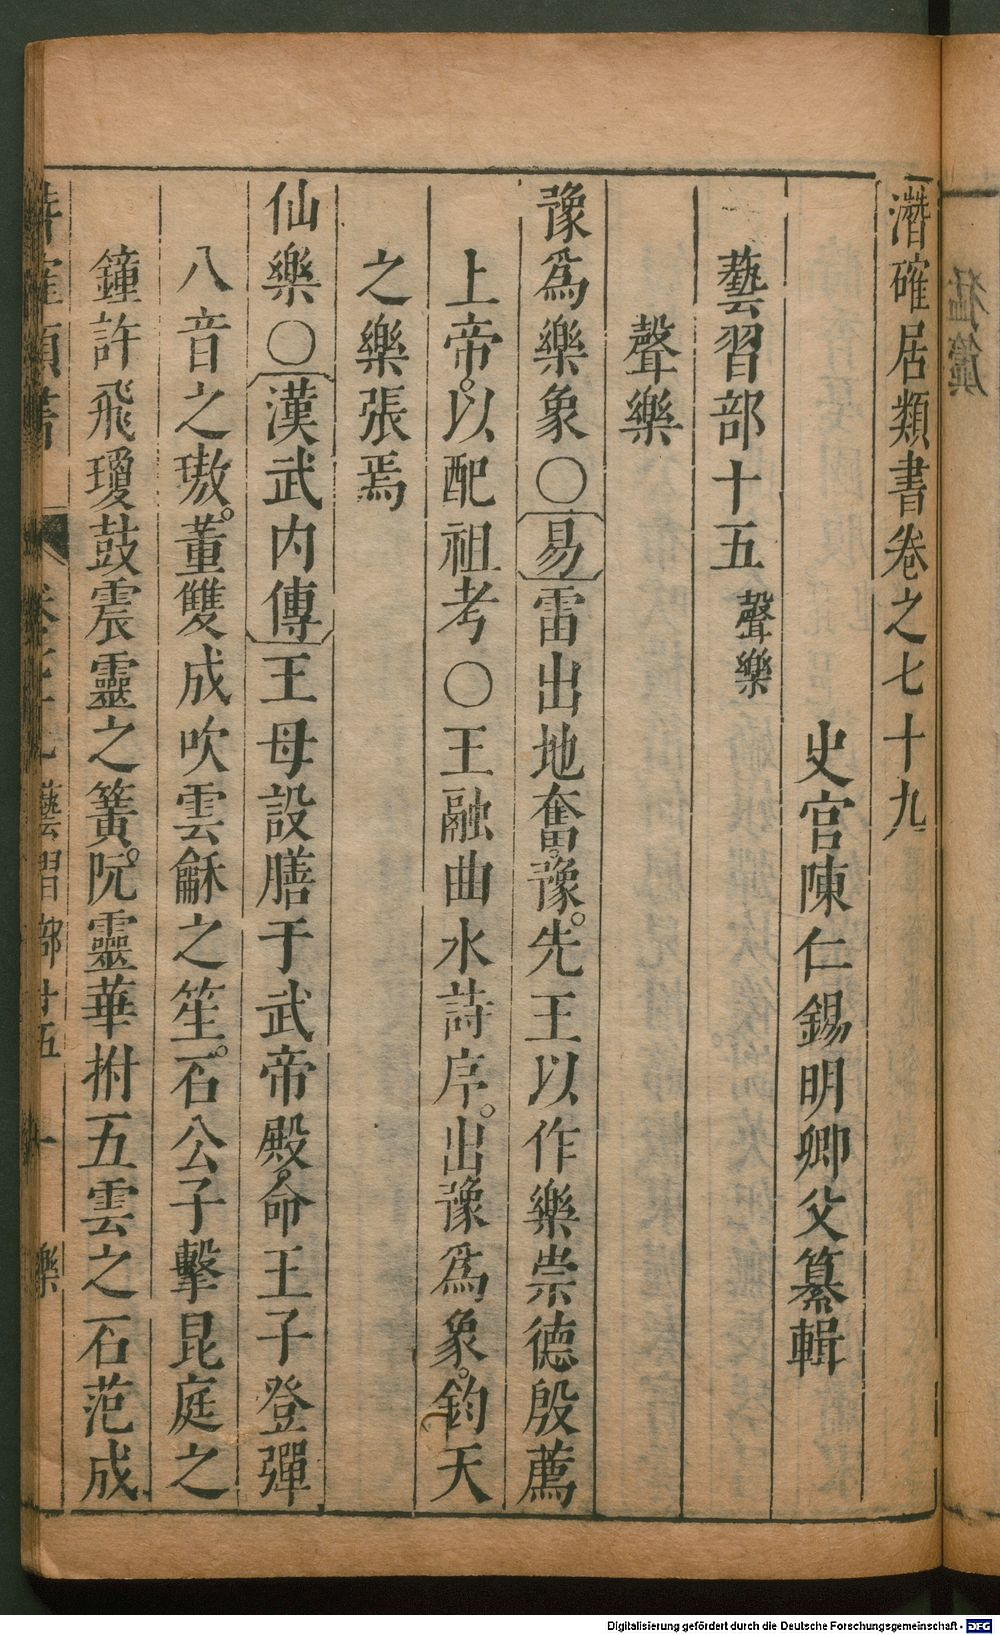 潛確居類書卷之七十九
史官陳仁錫明卿父纂輯
藝習部十五 聲樂
聲樂
豫爲樂象〇易雷出地奮豫。先王以作樂崇德殷薦
上帝。以配祖考〇王融曲水詩序。出豫爲象。鈞天
之樂張焉
仙樂〇漢武内傳王母設膳于武帝殿。命王子登彈
八音之璈。董雙成吹雲龢之笙。石公子擊昆庭之
鐘許飛瓊鼓震靈之簧。阮靈華拊五雲之石范成
藝習部十五 一 樂
Digitalisierung gefördert durch die Deutsche Forschungsgemeinschaft - DFG